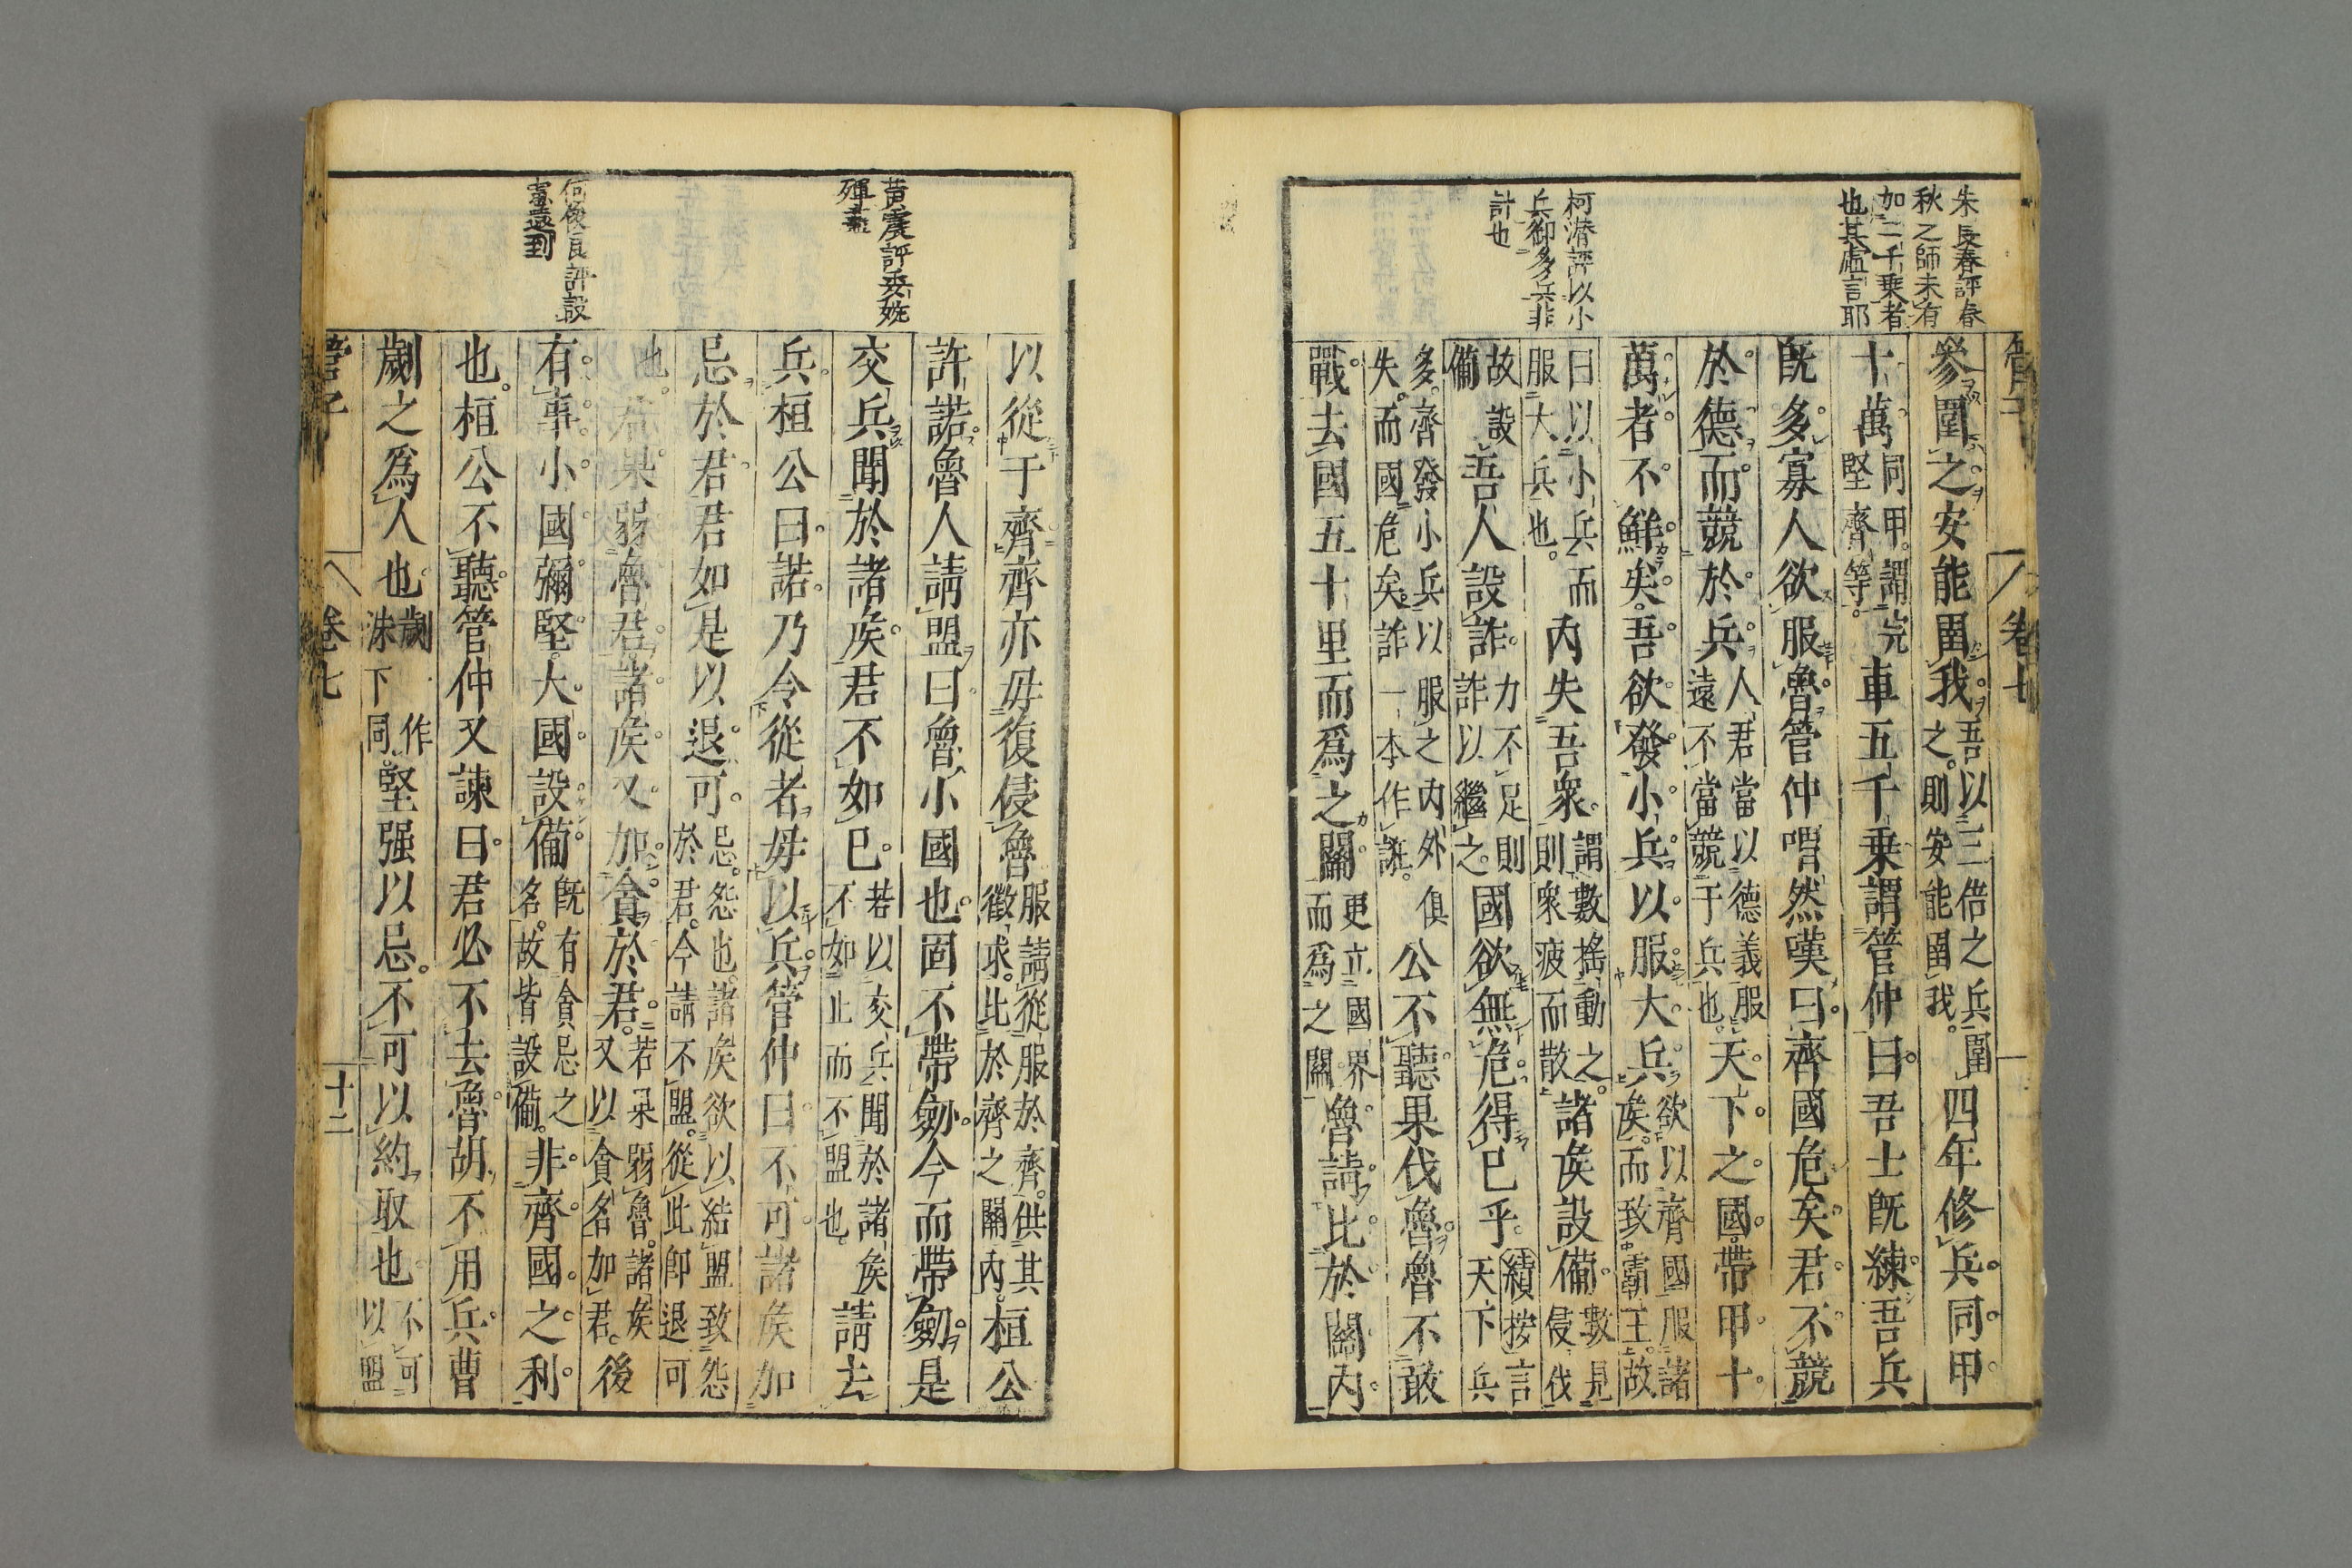 朱長春評春
秋之師未有
加二千乗者
也其虛言耶
柯潜評以小
兵御多兵非
計也
管子
卷七
參圍之安能圉我吾以三倍之兵圍之則安能圉我四年修兵同甲
十萬同甲謂完堅齊等車五千乗謂管仲曰吾士既練吾兵
既多寡人欲服魯管仲喟然嘆曰齊國危矣君不競
於德而競於兵人君當以德義服遠不當競于兵也天下之國帶甲十
萬者不鮮矣吾欲發小兵以服大兵欲以齊國服諸矦而致霸王故
曰以小兵而服大兵也內失吾衆謂數搖動之則衆疲而散諸矦設備數見侵伐
故設備吾人設詐力不足則詐以繼之國欲無危得已乎續按言天下兵
多齊發小兵以服之内外俱失而國危矣詐一本作誰公不聽果伐魯魯不敢
戰去國五十里而爲之關更立國界而爲之關魯請比於關内
黄震評委婉
殫盡
何俊良評設
慮遠到
以從于齊齊亦毋復侵魯服請從服於齊供其徵求比於齊之關内桓公
許諾魯人請盟曰魯小國也固不帶劒今而帶劒是
交兵聞於諸矦君不如已若以交兵聞於諸矦不如止而不盟也請去
兵桓公曰諾乃令從者毋以兵管仲曰不可諸矦加
忌於君君如是以退可忌怨也諸矦欲以結盟致怨於君今請不盟從此卽退可
也君果弱魯君諸矦又加貪於君若果弱魯諸矦又以貪名加君後
有事小國彌堅大國設備既有貪忌之名故皆設備非齊國之利
也桓公不聽管仲又諫曰君必不去魯胡不用兵曹
劌之爲人也劌洙下作同堅强以忌不可以約取也不可以盟
管子
卷七
十二